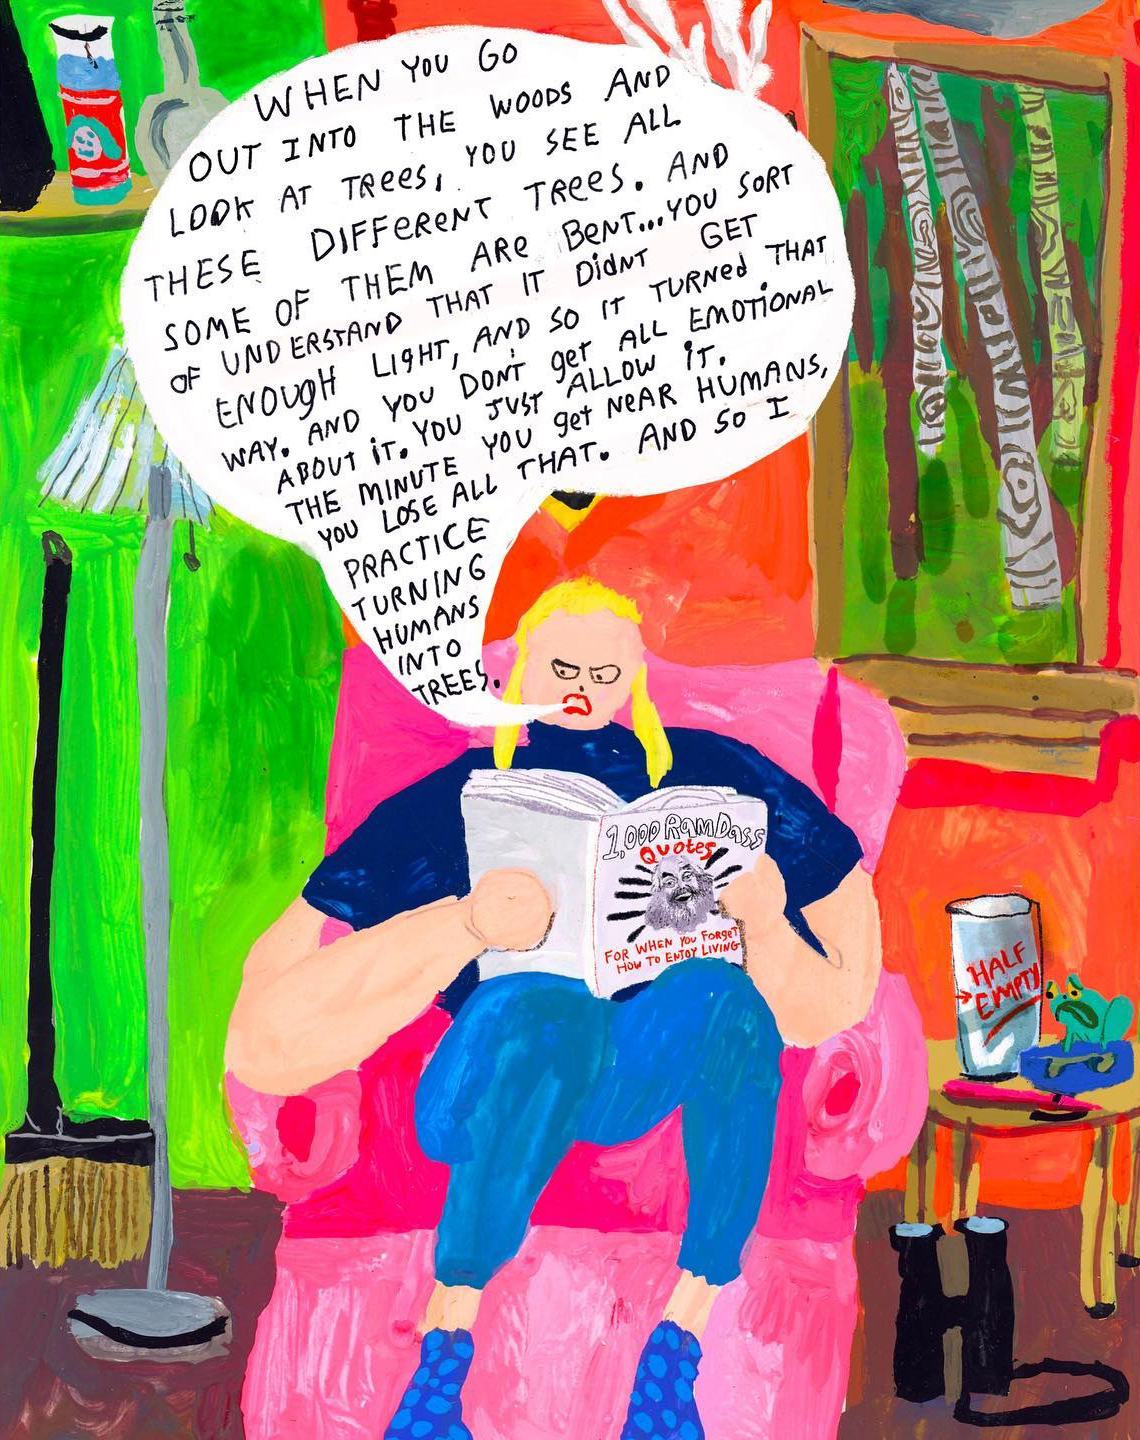 WHEN YOU GO
OUT INTO THE WOODS AND
LOOK AT TREES, YOU SEE ALL
THESE DIFFERENT TREES. AND
SOME OF THEM ARE BENT...YOU SORT
OF UNDERSTAND THAT IT DIDNT GET
ENOUGH LIGHT, AND SO IT TURNED THAT
WAY. AND YOU DON'T get ALL EMOTIONAL
ABOUT iT. YOU JUST ALLOW iT.
THE MINUTE YOU get NEAR HUMANS,
YOU LOSE ALL THAT. AND SO I
PRACTICE
TURNING
HUMANS
INTO
TREES.
1,000 Ram Dass
Quotes
FOR WHEN YOU FORGET
HOW TO ENJOY LIVING
HALF
EMPTY